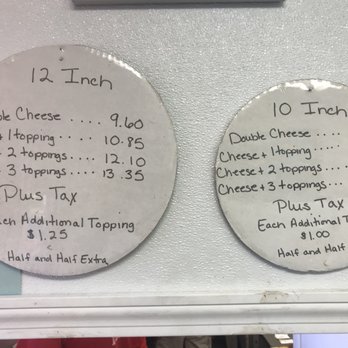 12 Inch
ble Cheese .... 9.60
+ 1 topping .... 10.85
+ 2 toppings .... 12.10
+ 3 toppings .... 13.35
Plus Tax
Each Additional Topping
$1.25
Half and Half Extra
10 Inch
Double Cheese ....
Cheese + 1 topping ....
Cheese + 2 toppings ....
Cheese + 3 toppings ....
Plus Tax
Each Additional T
$1.00
Half and Half